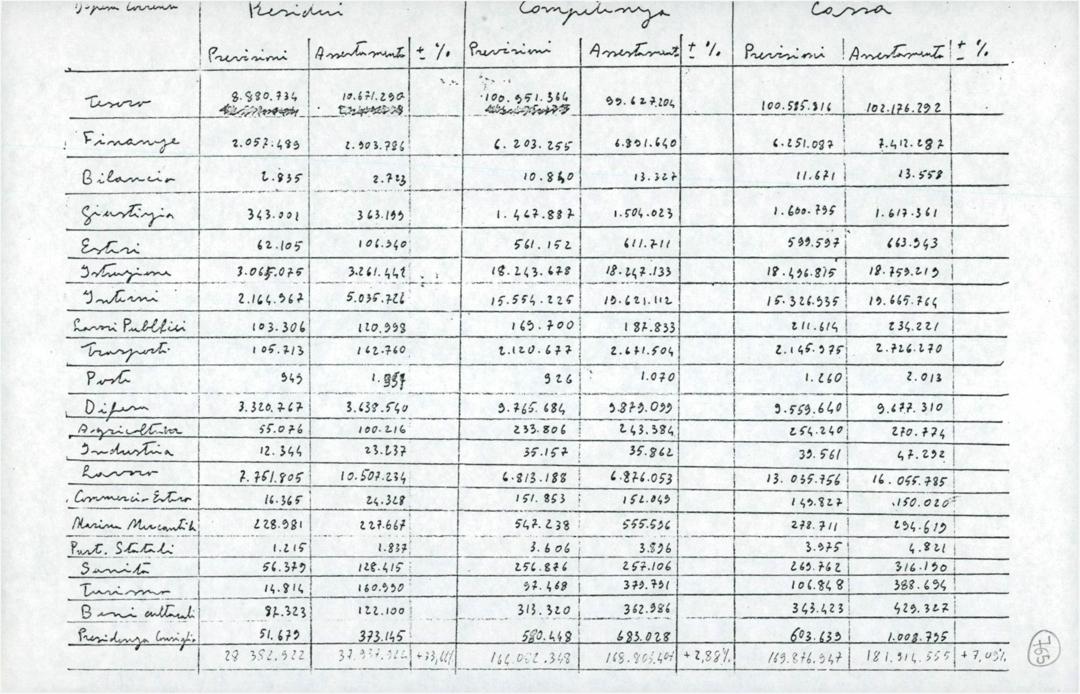 Residui Competenza Cassa
Previsioni Assestamento ± % Previsioni Assestamento ± % Previsioni Assestamento ± %
Tesoro 8.880.734 10.671.290 100.951.364 99.627.204 100.585.816 102.176.292
Finanze 2.057.489 2.903.786 6.203.255 6.891.640 6.251.087 7.412.287
Bilancio 2.835 2.723 10.840 13.327 11.671 13.558
Giustizia 343.001 363.199 1.467.887 1.504.023 1.600.795 1.617.361
Esteri 62.105 106.940 561.152 611.711 599.597 663.943
Istruzione 3.065.075 3.261.442 18.243.678 18.247.133 18.496.815 18.759.219
Interni 2.164.967 5.035.726 15.554.225 19.621.112 15.326.935 19.665.764
Lavori Pubblici 103.306 120.998 169.700 187.833 211.614 234.221
Trasporti 105.713 162.760 2.120.677 2.671.504 2.145.975 2.726.270
Poste 949 926 1.070 1.260 2.013
Difesa 3.320.767 3.638.540 9.765.684 9.879.099 9.559.640 9.677.310
Agricoltura 55.076 100.216 233.806 243.384 254.240 270.774
Industria 12.344 23.237 35.157 35.862 39.561 47.292
Lavoro 7.751.805 10.507.234 6.813.188 6.876.053 13.035.756 16.055.785
Commercio Estero 16.365 24.328 151.853 152.049 149.827 150.020
Marina Mercantile 228.981 227.667 547.238 555.596 278.711 294.619
Part. Statali 1.215 1.837 3.606 3.896 3.975 4.821
Sanità 56.379 128.415 256.876 257.106 269.762 316.190
Turismo 14.814 160.990 97.468 379.791 106.848 388.694
Beni culturali 87.323 122.100 313.320 362.986 343.423 429.327
Presidenza Consiglio 51.679 373.145 580.448 683.028 603.639 1.008.795
28 382.922 164.082.348 +2,88% 169.876.947 181.914.555 +7,09%
765